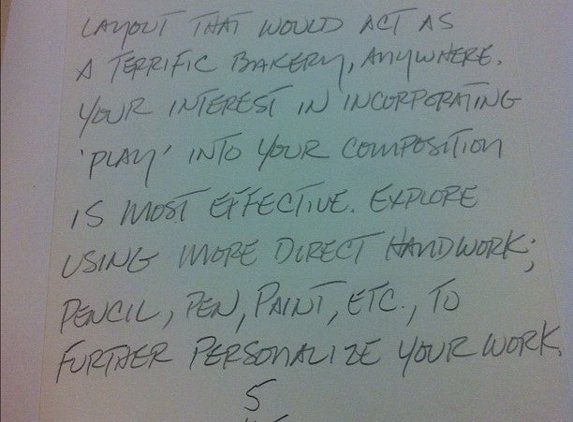 LAYOUT THAT WOULD ACT AS
A TERRIFIC BAKERY, ANYWHERE.
YOUR INTEREST IN INCORPORATING
'PLAY' INTO YOUR COMPOSITION
IS MOST EFFECTIVE. EXPLORE
USING MORE DIRECT HANDWORK;
PENCIL, PEN, PAINT, ETC., TO
FURTHER PERSONALIZE YOUR WORK.
5